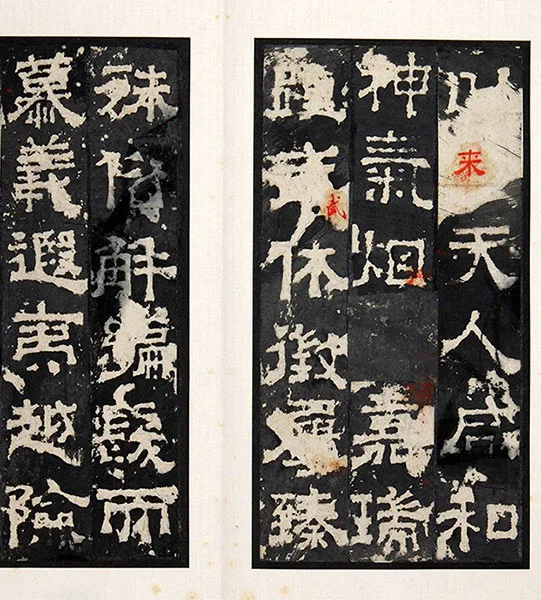 以来天人咸和
神氣烟嘉瑞
踵武休徵屢臻
武
殊俗解編髮而
慕義遐夷越險